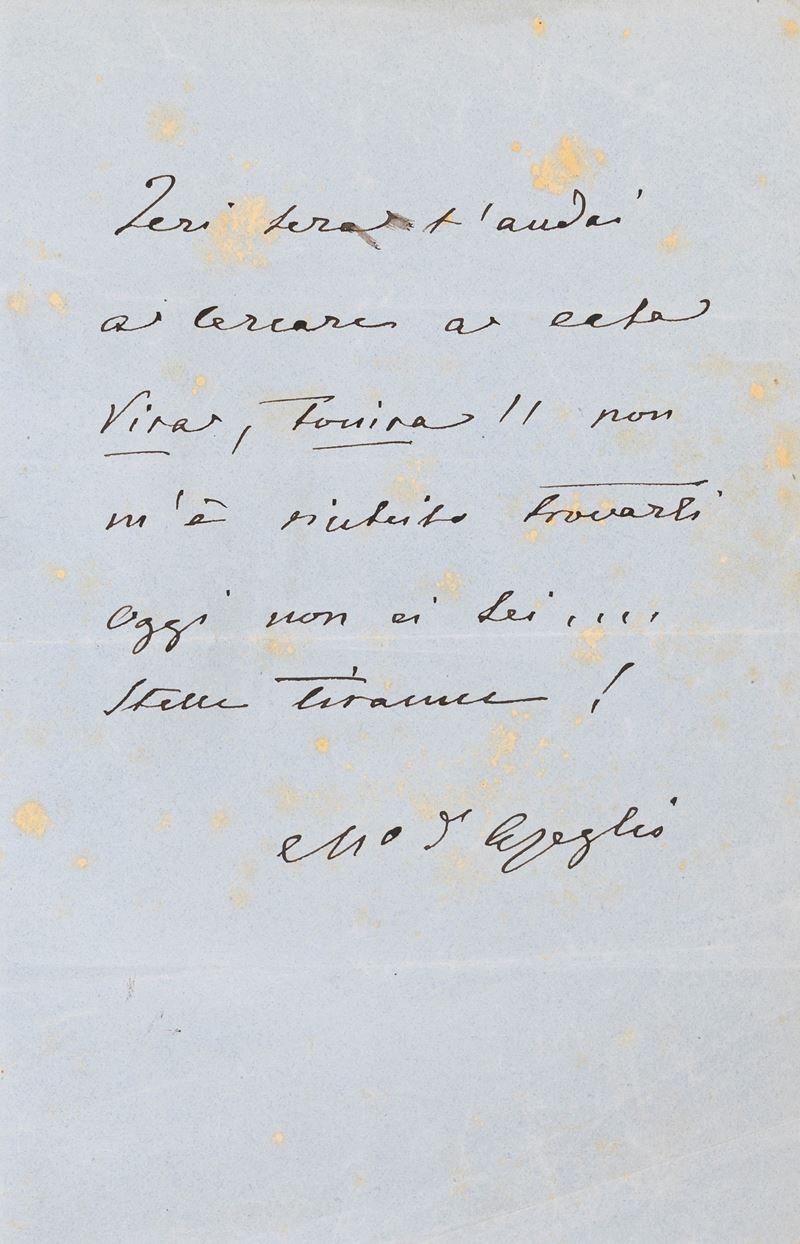 Ieri sera t'andai
a cercare a casa
Vira, Tonira !! non
m'è riuscito trovarti
oggi non ci sei ....
Stelle tiranne !
Mo d'Azeglio